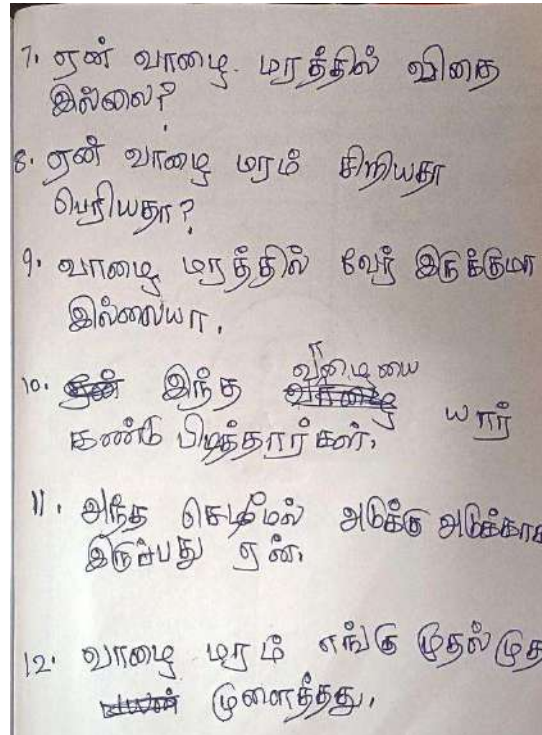 7. ஏன் வாழை மரத்தில் விதை
இல்லை?
8. ஏன் வாழை மரம் சிறியதா
பெரியதா?
9. வாழை மரத்தில் வேர் இருக்குமா
இல்லையா.
10. இந்த வாழையை யார்
கண்டு பிடித்தார்கள்.
11. அந்த செடிமேல் அடுக்கு அடுக்காக
இருப்பது ஏன்.
12. வாழை மரம் எங்கு முதல் முத
முளைத்தது.